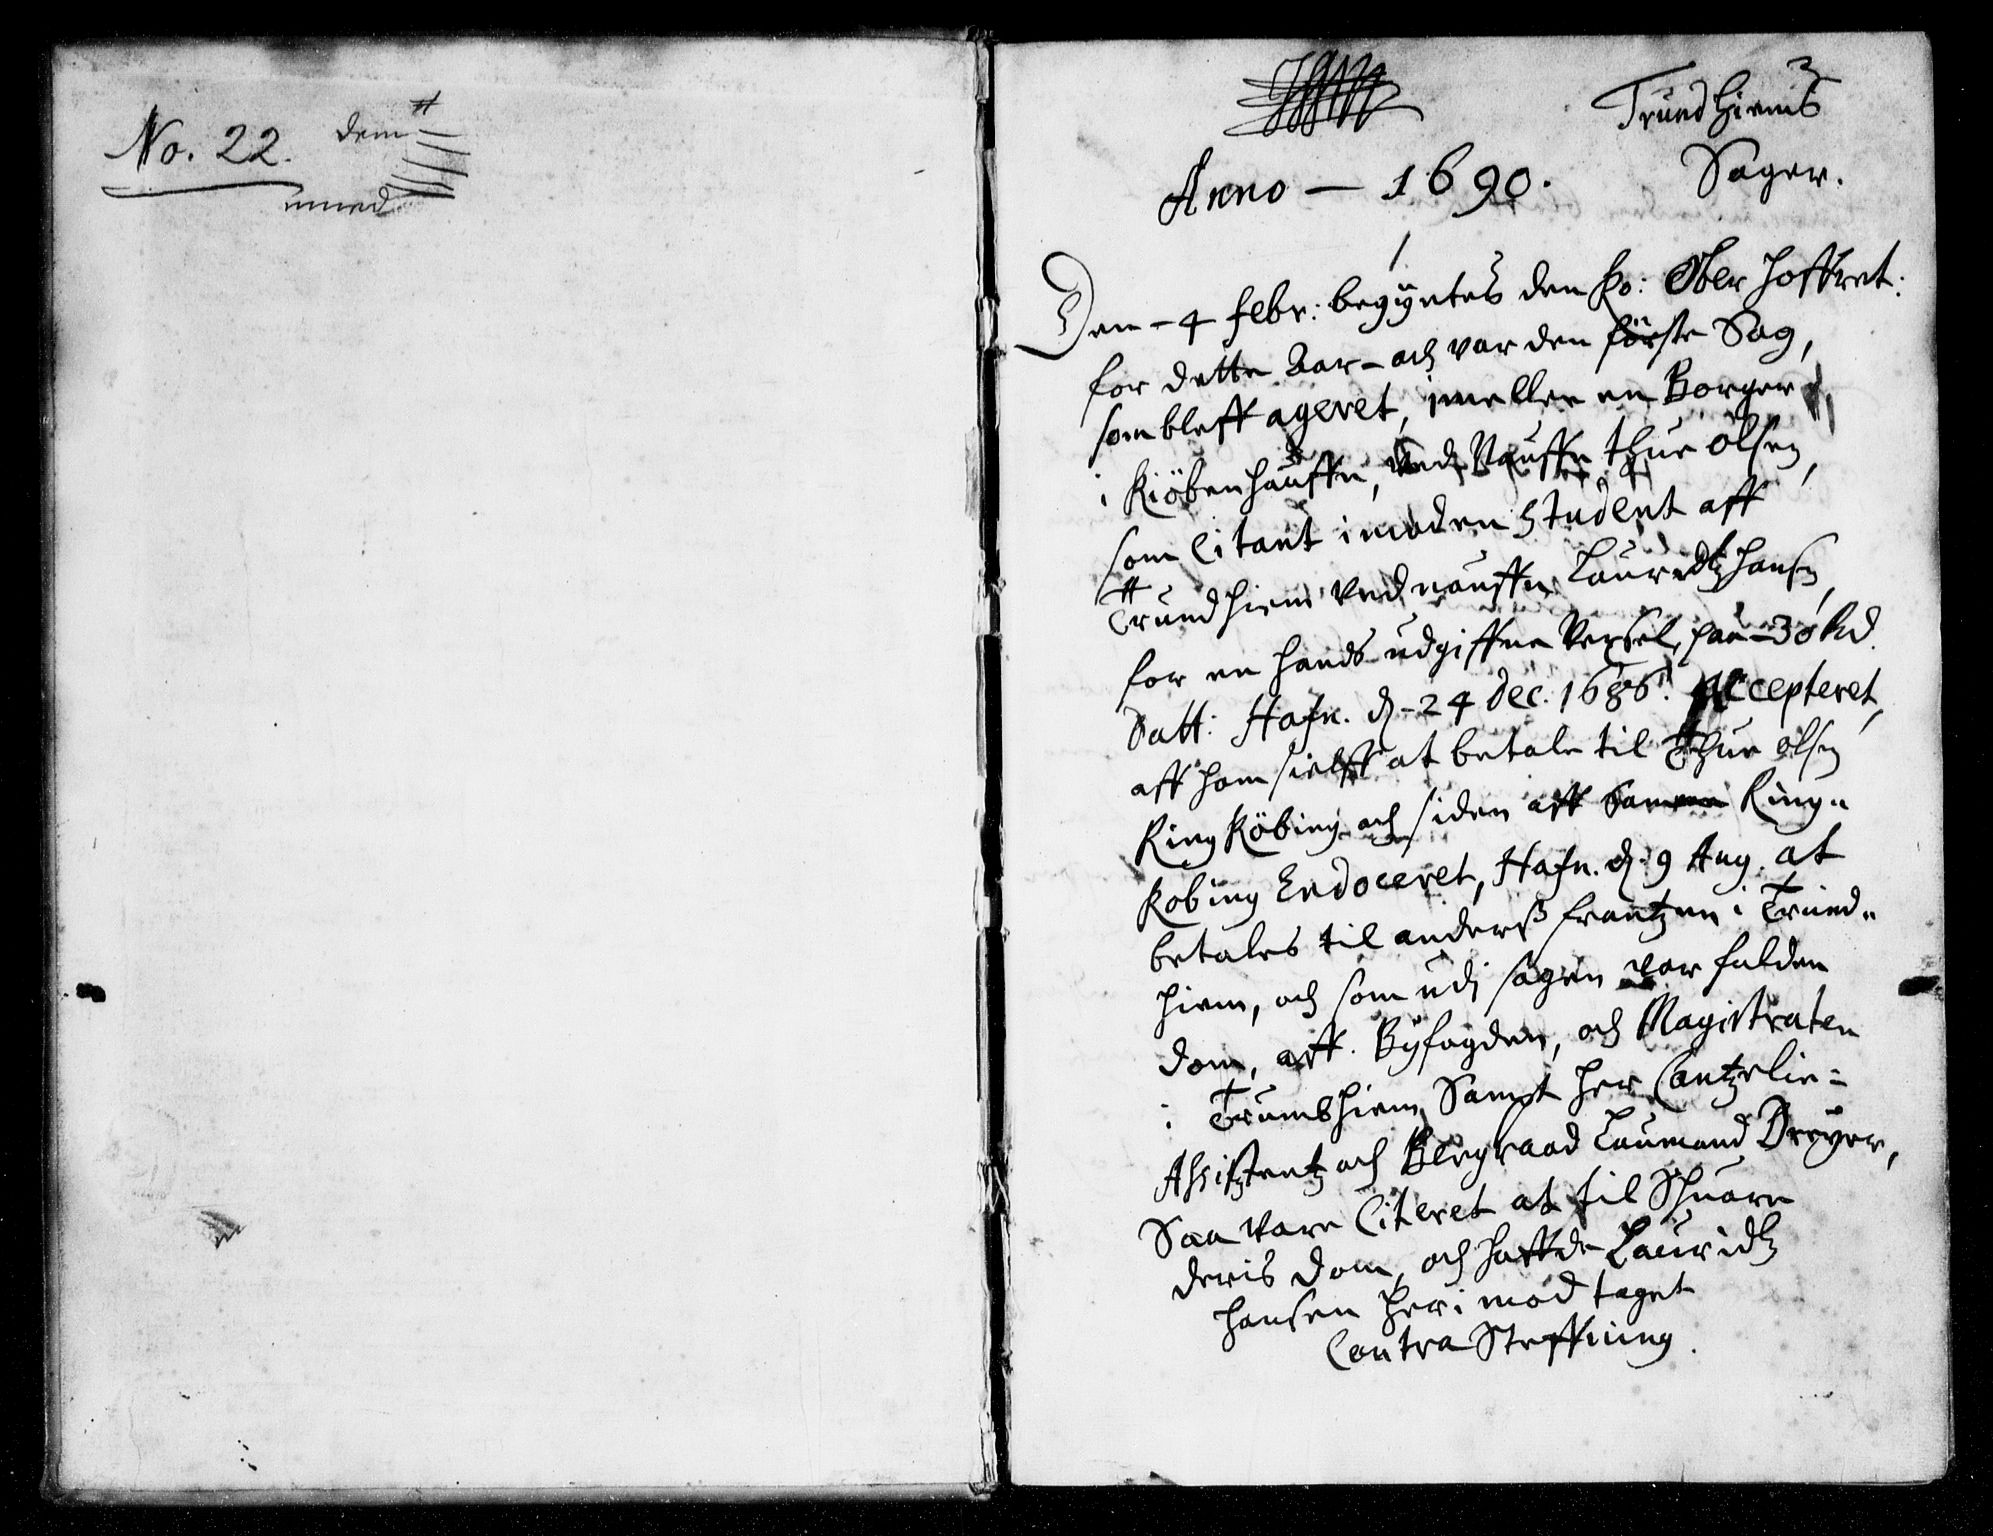 No. 22.
dem
med
Trundhiems
Sager.
Anno - 1690.
1
Den - 4 febr: begyntes den Ko: Ober hoffret:
for dette Aar - och var den förste Sag,
som bleff ageret, imellem en Borger
i Kiöbenhauffn, ved Nauffn thue olsen,
som Citant imod en Student aff
Trundhiem ved nauffn Lauridtz hansen,
for en hands udgiffne Vexsel, paa - 30 Rd.
Datt: Hafn. d - 24 dec. 1686. Accepteret,
aff ham sielff at betale til Thue olsen
Ring Köbing och siden aff samme Ring-
kobing Endoceret, Hafn. d. 9 Aug. at
betales til anderss frantzen i Trund-
hiem, och som udj sagen var falden
dom, aff Byfogden, och Magistraten
i Trundhiem Sampt her Cantzelie-
Assistentz och Bergraad Laumand Dreyer,
Saa vare Citeret at til Suare
deris dom, och haffde Lauridtz
hansen her imod taget
Contra Steffning.